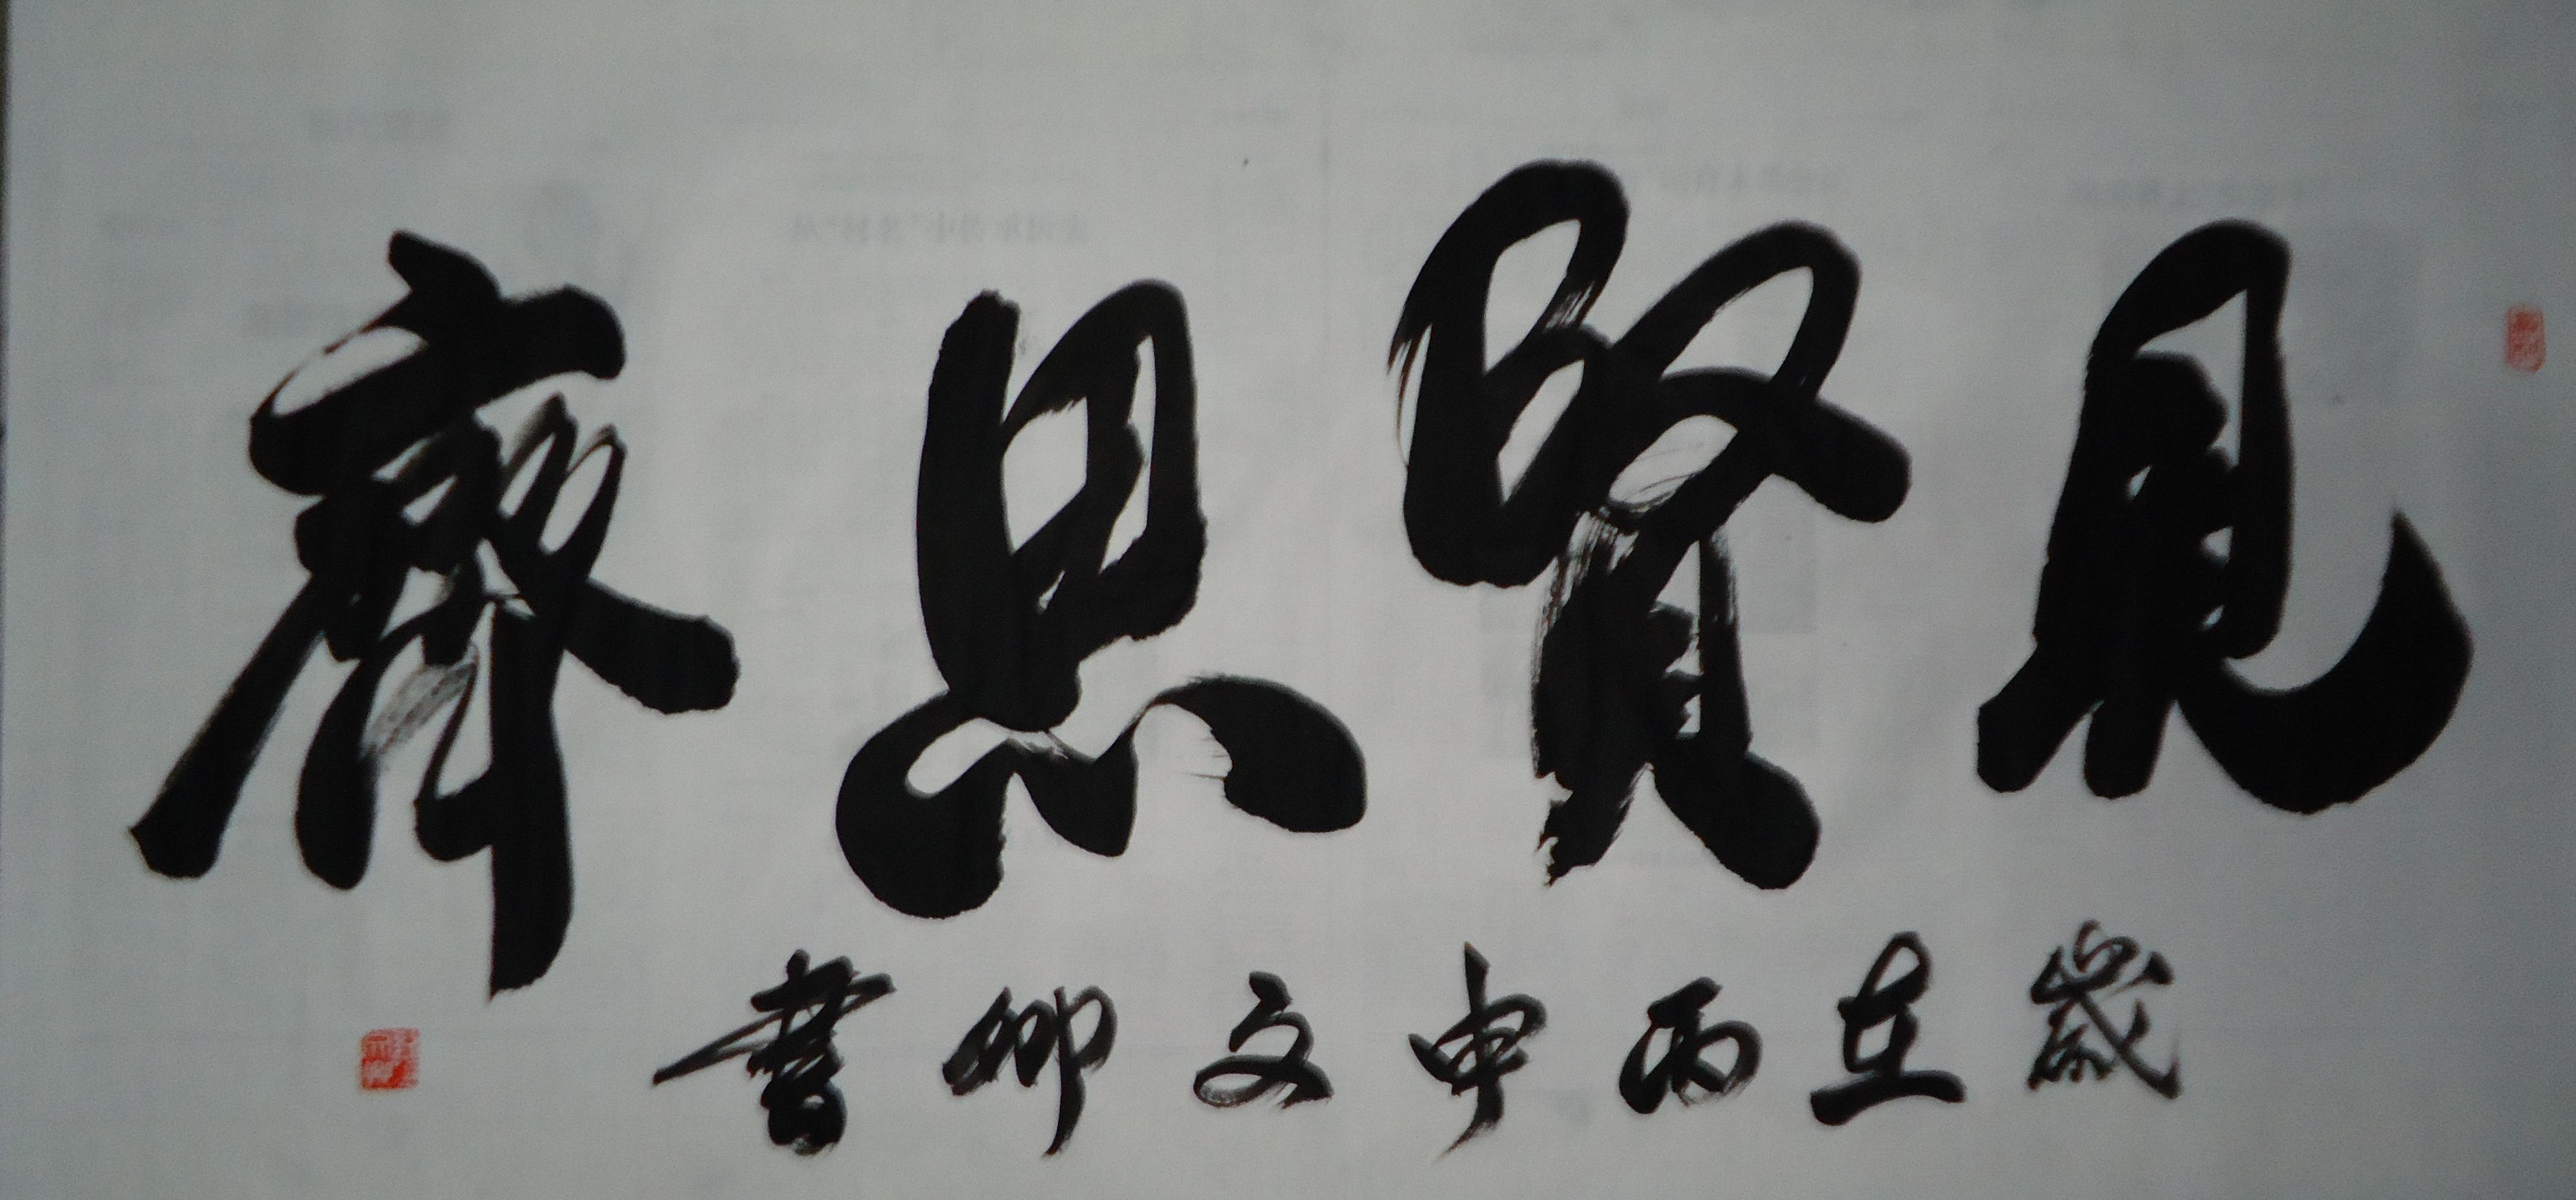 見賢思齊
歲在丙申文卿書